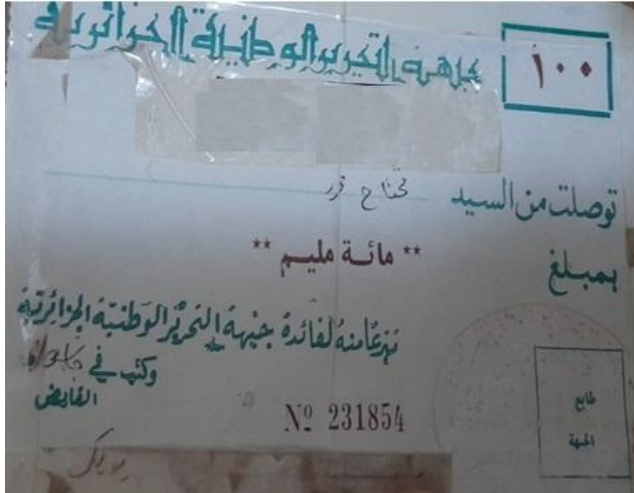 جبهة التحرير الوطنية الجزائرية
١٠٠
توصلت من السيد
بمبلغ ** مائة مليم **
تبرعا منه لفائدة جبهة التحرير الوطنية الجزائرية
وكتب في
القابض
طابع
الجبهة
Nº 231854